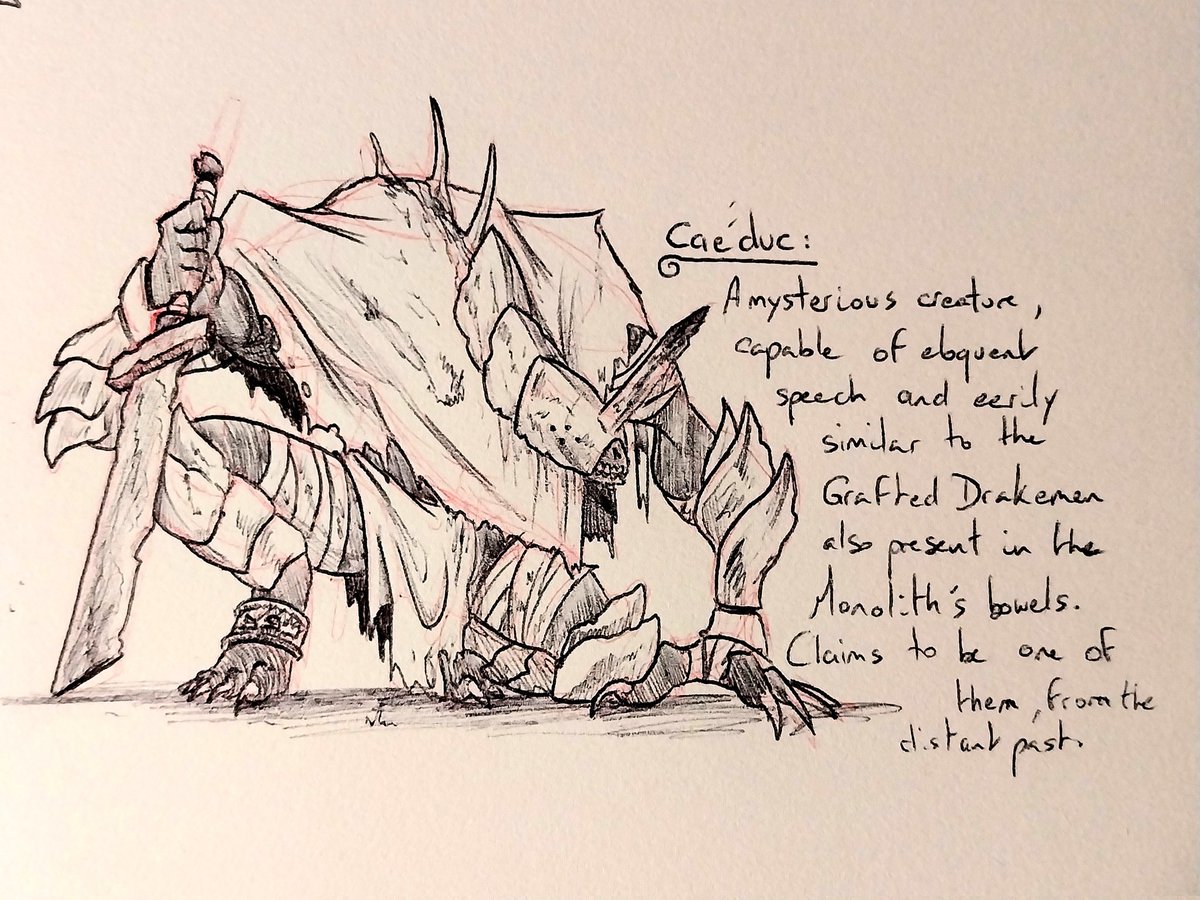 Caé'duc:
A mysterious creature,
capable of eloquent
speech and eerily
similar to the
Grafted Drakemen
also present in the
Monolith's bowels.
Claims to be one of
them, from the
distant past.